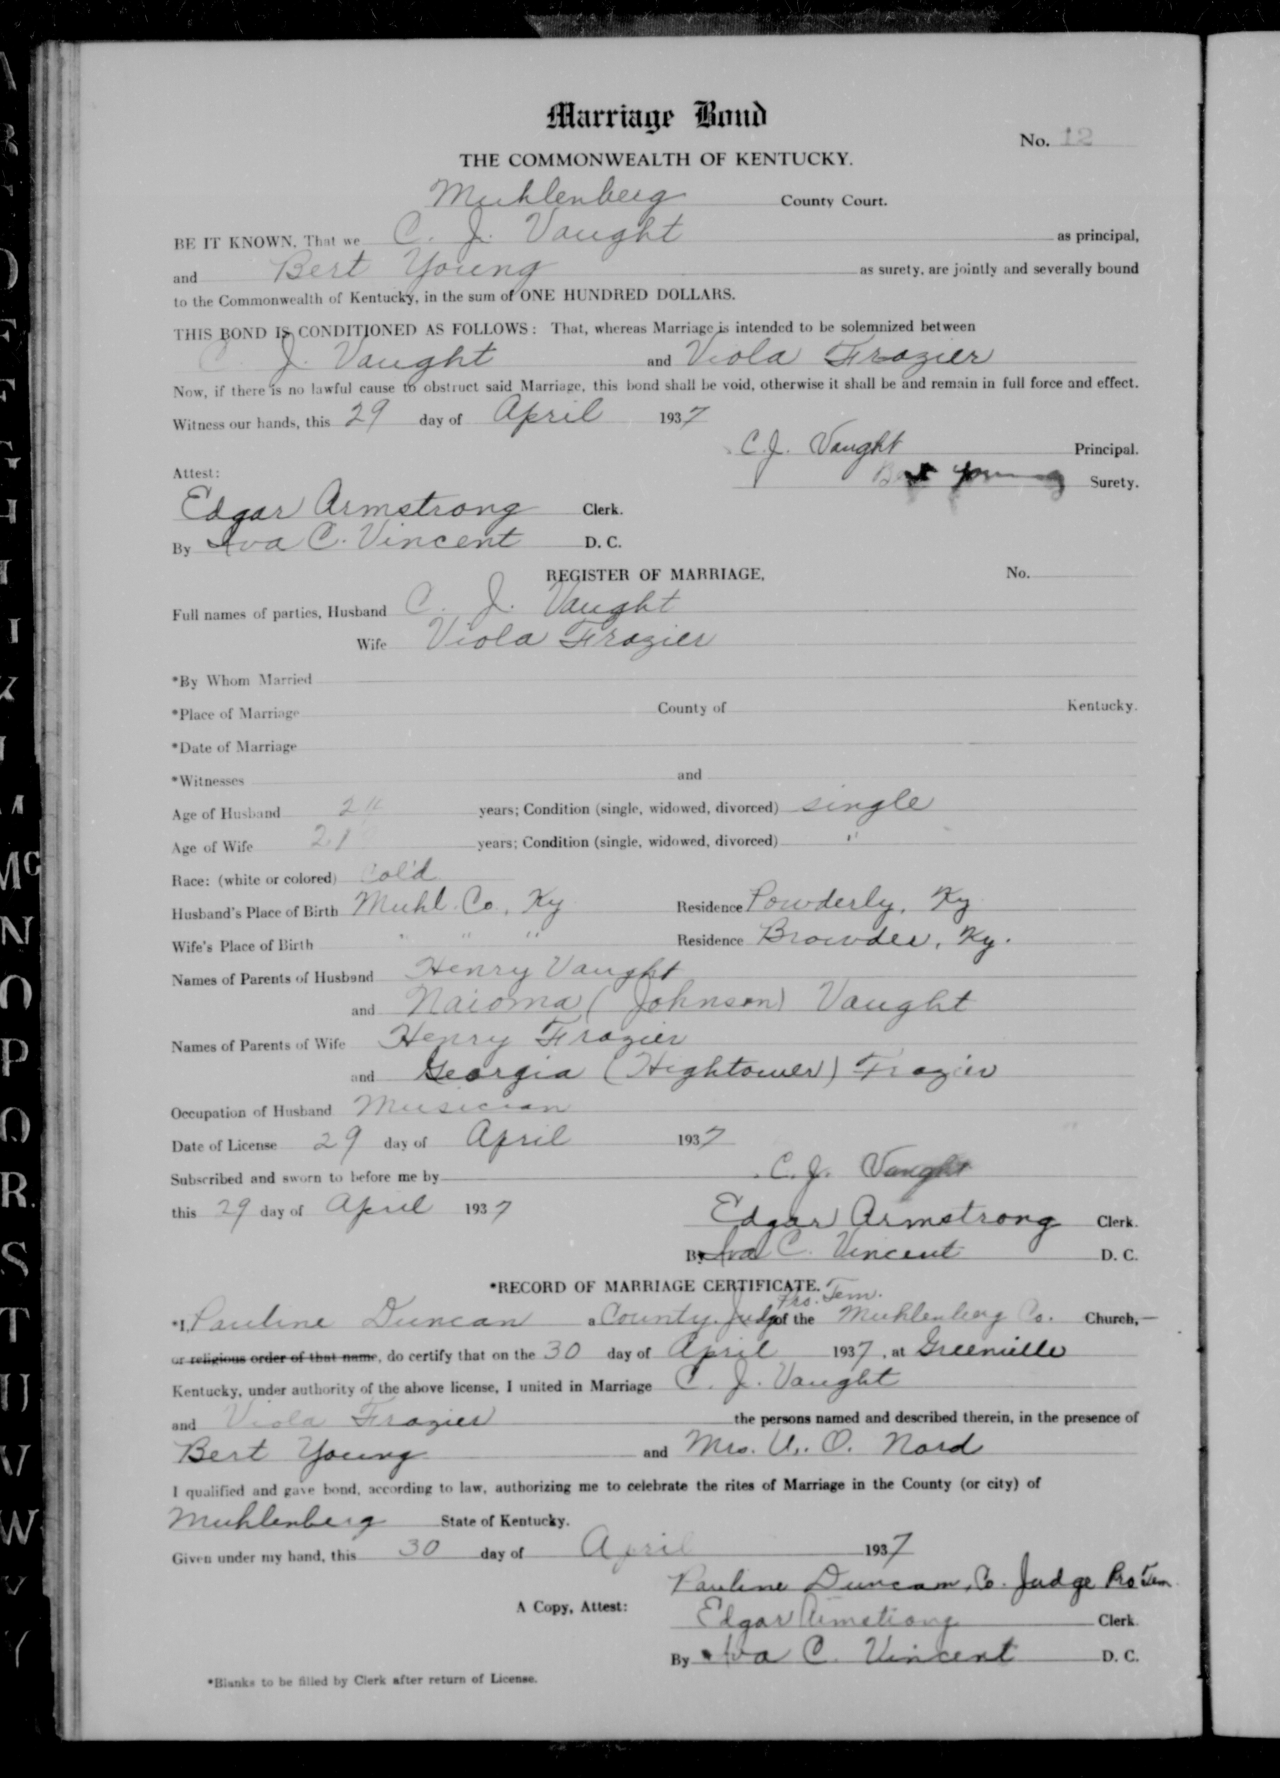 Marriage Bond
No. 12
THE COMMONWEALTH OF KENTUCKY.
Muhlenberg County Court.
BE IT KNOWN, That we C. J. Vaught as principal,
and Bert Young as surety, are jointly and severally bound
to the Commonwealth of Kentucky, in the sum of ONE HUNDRED DOLLARS.
THIS BOND IS CONDITIONED AS FOLLOWS: That, whereas Marriage is intended to be solemnized between
C. J. Vaught and Viola Frazier
Now, if there is no lawful cause to obstruct said Marriage, this bond shall be void, otherwise it shall be and remain in full force and effect.
Witness our hands, this 29 day of April 1937
C.J. Vaught Principal.
Attest: Bert Young Surety.
Edgar Armstrong Clerk.
By Iva C. Vincent D. C.
REGISTER OF MARRIAGE, No.
Full names of parties, Husband C. J. Vaught
Wife Viola Frazier
*By Whom Married
*Place of Marriage County of Kentucky.
*Date of Marriage
*Witnesses and
Age of Husband 24 years; Condition (single, widowed, divorced) single
Age of Wife 21 years; Condition (single, widowed, divorced) "
Race: (white or colored) Col'd
Husband's Place of Birth Muhl. Co., Ky Residence Powderly, Ky
Wife's Place of Birth " " " Residence Browder, Ky.
Names of Parents of Husband Henry Vaught
and Naioma (Johnson) Vaught
Names of Parents of Wife Henry Frazier
and Georgia (Hightower) Frazier
Occupation of Husband Musician
Date of License 29 day of April 1937
Subscribed and sworn to before me by C.J. Vaught
this 29 day of April 1937
Edgar Armstrong Clerk.
By Iva C. Vincent D. C.
*RECORD OF MARRIAGE CERTIFICATE.
Pro. Tem.
*I, Pauline Duncan a County Judge of the Muhlenberg Co. Church,
or religious order of that name, do certify that on the 30 day of April 1937, at Greenville
Kentucky, under authority of the above license, I united in Marriage C. J. Vaught
and Viola Frazier the persons named and described therein, in the presence of
Bert Young and Mrs. U. O. Nord
I qualified and gave bond, according to law, authorizing me to celebrate the rites of Marriage in the County (or city) of
Muhlenberg State of Kentucky.
Given under my hand, this 30 day of April 1937
Pauline Duncan, Co. Judge Pro Tem
A Copy, Attest: Edgar Armstrong Clerk
By Iva C. Vincent D. C.
*Blanks to be filled by Clerk after return of License.